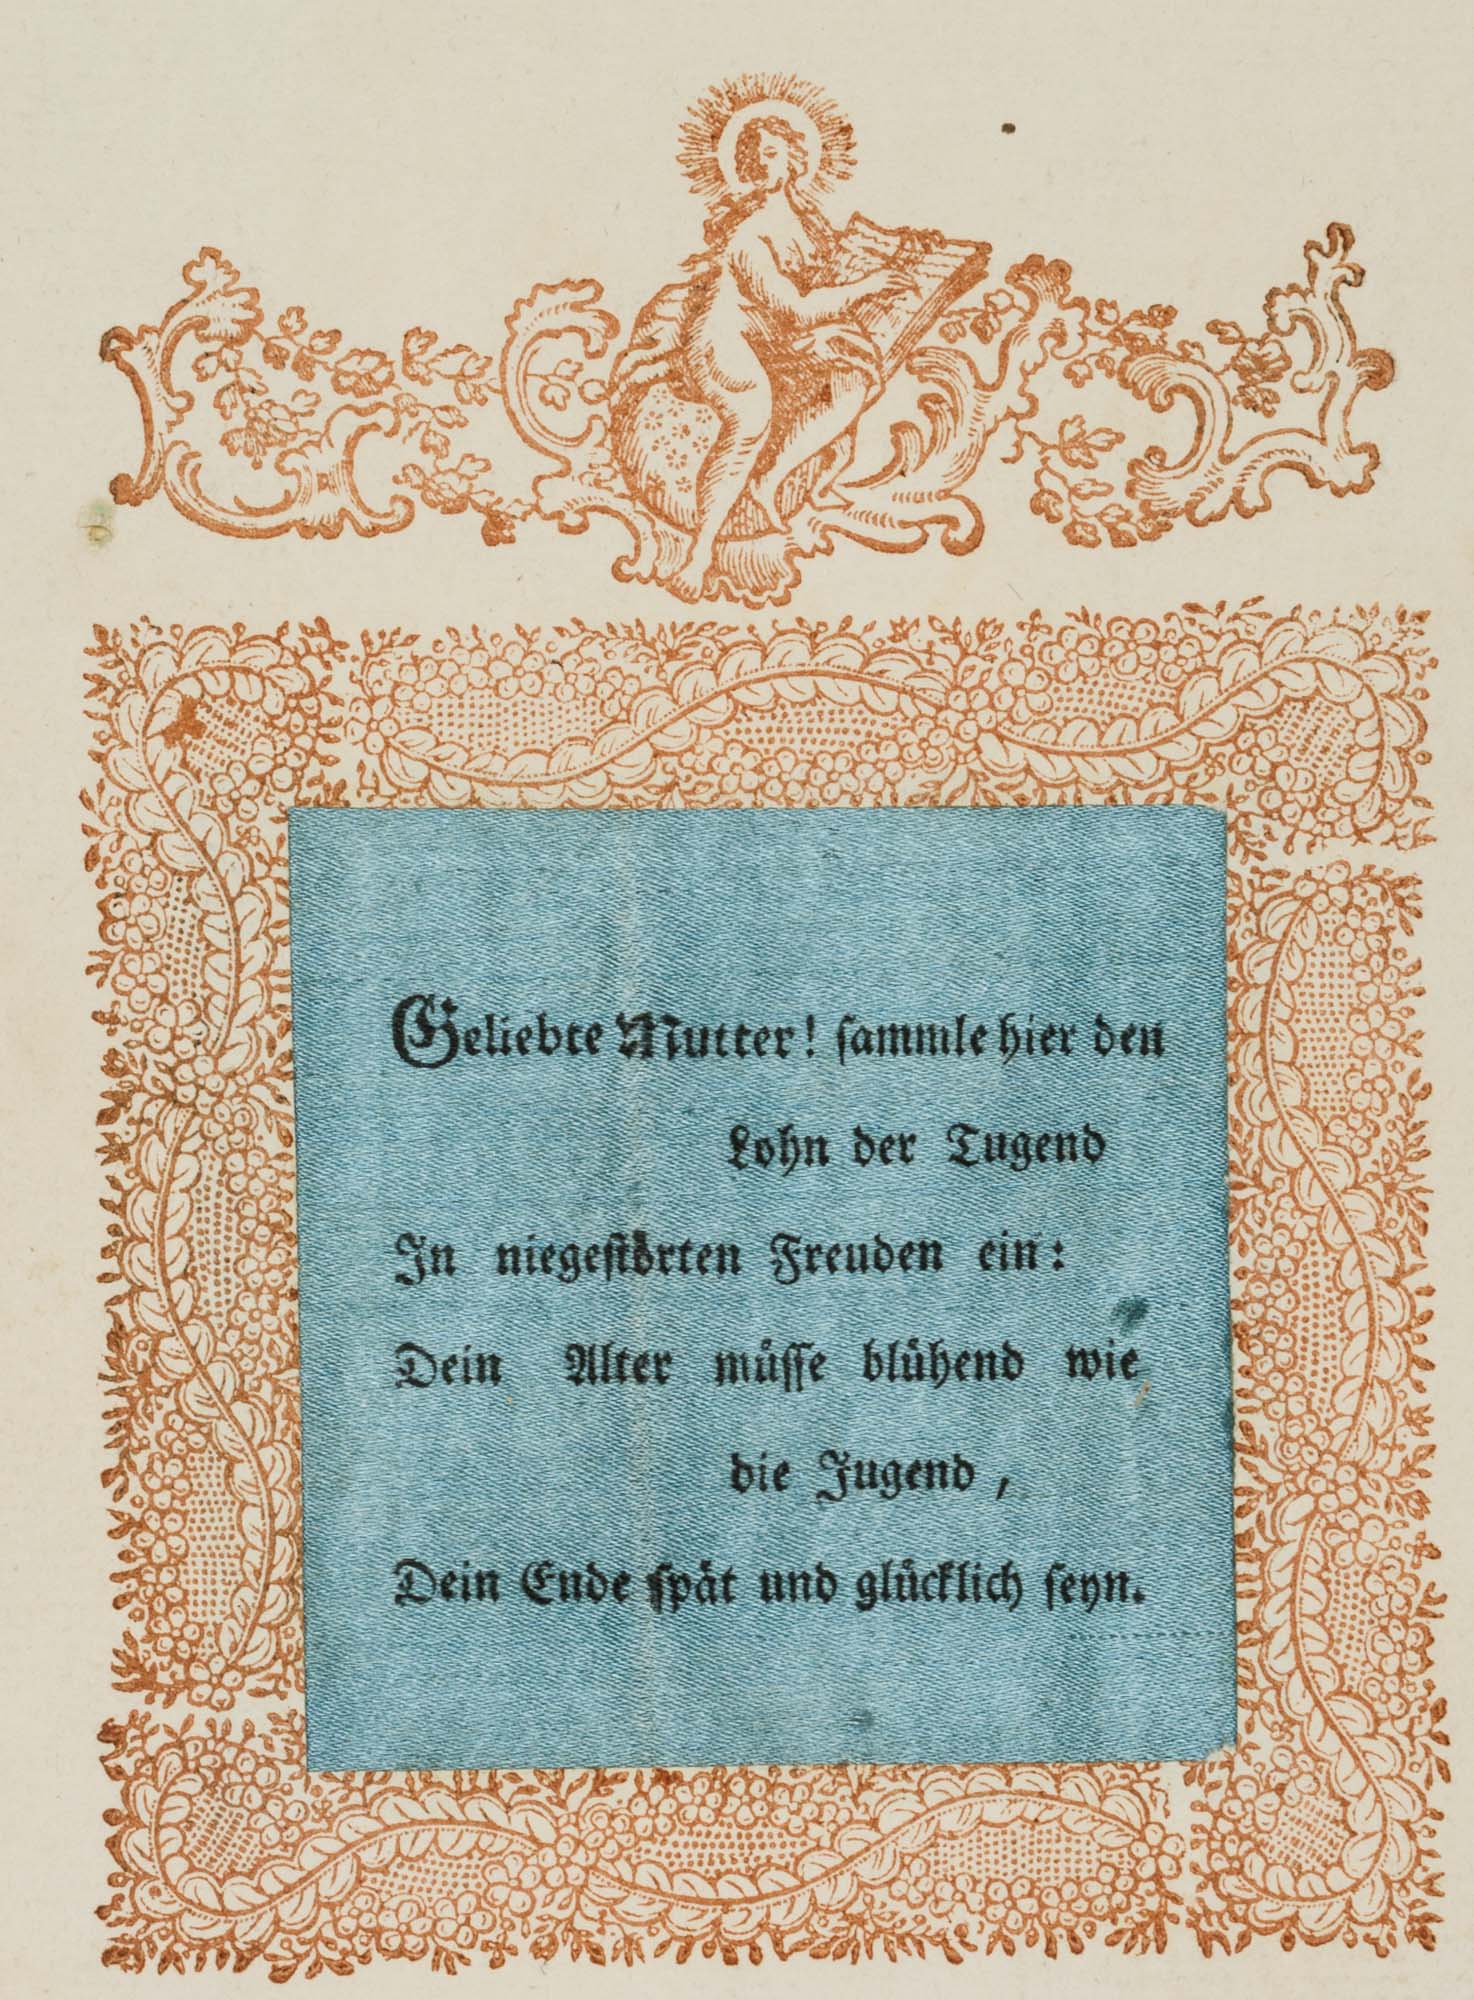 Geliebte Mutter! sammle hier den
Lohn der Tugend
In niegestörten Freuden ein:
Dein Alter müsse blühend wie
die Jugend,
Dein Ende spät und glücklich seyn.